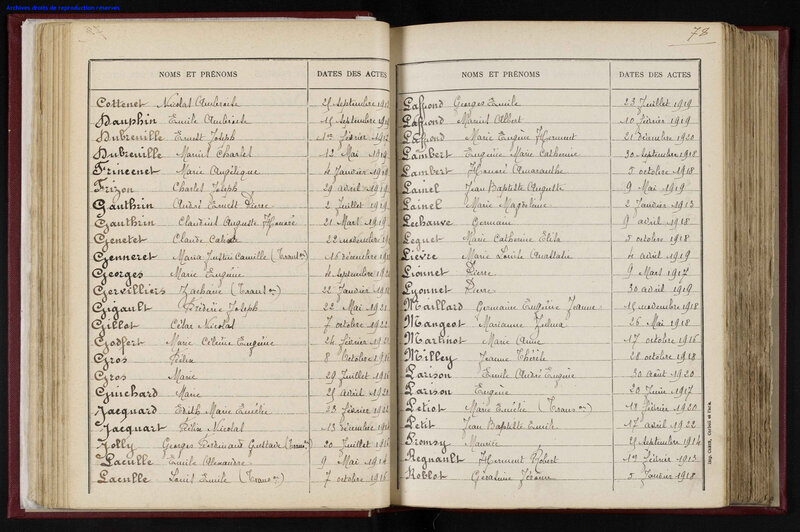 Archives droits de reproduction réservés
NOMS ET PRÉNOMS DATES DES ACTES
Cottenet Nicolas Ambroise Septembre
Dauphin Emile Ambroise 15 Septembre
Dubreuille Ernest Joseph 1er Février
Dubreuille Marcel Charles 12 Mai
Frincenet Marie Angélique 4 Janvier
Frizon Charles Joseph 29 avril
Ganthrin André Ernest Pierre 2 Juillet
Ganthrin Claudius Auguste Honoré 21 Mars
Genetet Claude 22 novembre
Genneret Maria Justin Camille (Transon) 16 décembre
Georges Marie Eugénie 4 Septembre
Gervilliers Zacharie (Transon) 22 Janvier
Gigault Frédéric Joseph 22 Mai
Gillot César Nicolas 7 octobre 1922
Godfert Marie Célénie Eugénie 24 Février
Gros Félix 8 Octobre
Gros Marie 29 Juillet
Guichard Marie 25 avril
Jacquard Edith Marie Emélie 23 Février
Jacquart Félix Nicolas 13 Décembre
Jolly Georges Ferdinand Gustave (Transon) 20 Juillet
Laculle Emile Alexandre 9 Mai
Laculle Louis Emile (Transon) 7 octobre
78
NOMS ET PRÉNOMS DATES DES ACTES
Laffond Georges Emile 23 Juillet 1919
Laffond Marius Albert 10 Février 1919
Laffond Marie Eugène Herment 21 Décembre 1920
Lambert Eugénie Marie Catherine 30 Septembre 1918
Lambert Honoré Amaranthe 5 octobre 1918
Lainel Jean Baptiste Auguste 9 Mai 1919
Lainel Marie Magdeleine 2 Janvier 1913
Lechauve Germain 9 avril 1918
Leguet Marie Catherine Eliza 5 octobre 1918
Lièvre Marie Louise Anastasie 4 avril 1919
Lionnet Pierre 9 Mars 1917
Lyonnet Pierre 30 avril 1919
Maillard Germaine Eugénie Jeanne 15 novembre 1918
Mangeot Marianne Zulma 26 Mai 1918
Martinot Marie Anne 17 octobre 1916
Milley Jeanne Thérèse 28 octobre 1918
Parison Emile André Eugène 30 août 1920
Parison Eugène 20 Juin 1917
Petiot Marie Emélie (Transon) 18 Février 1920
Petit Jean Baptiste Emile 17 avril 1922
Pronsy Maurice Septembre 1914
Regnault Herment Robert 1er Février 1913
Roblot Géraldine Jérôme 5 Janvier 1918